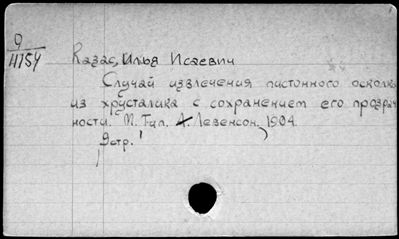 9
4154
Казас, Илья Исаевич
Случай извлечения пистонного осколка
из хрусталика с сохранением его прозрач
ности. М. Тип. А. Левенсон, 1904.
9стр.